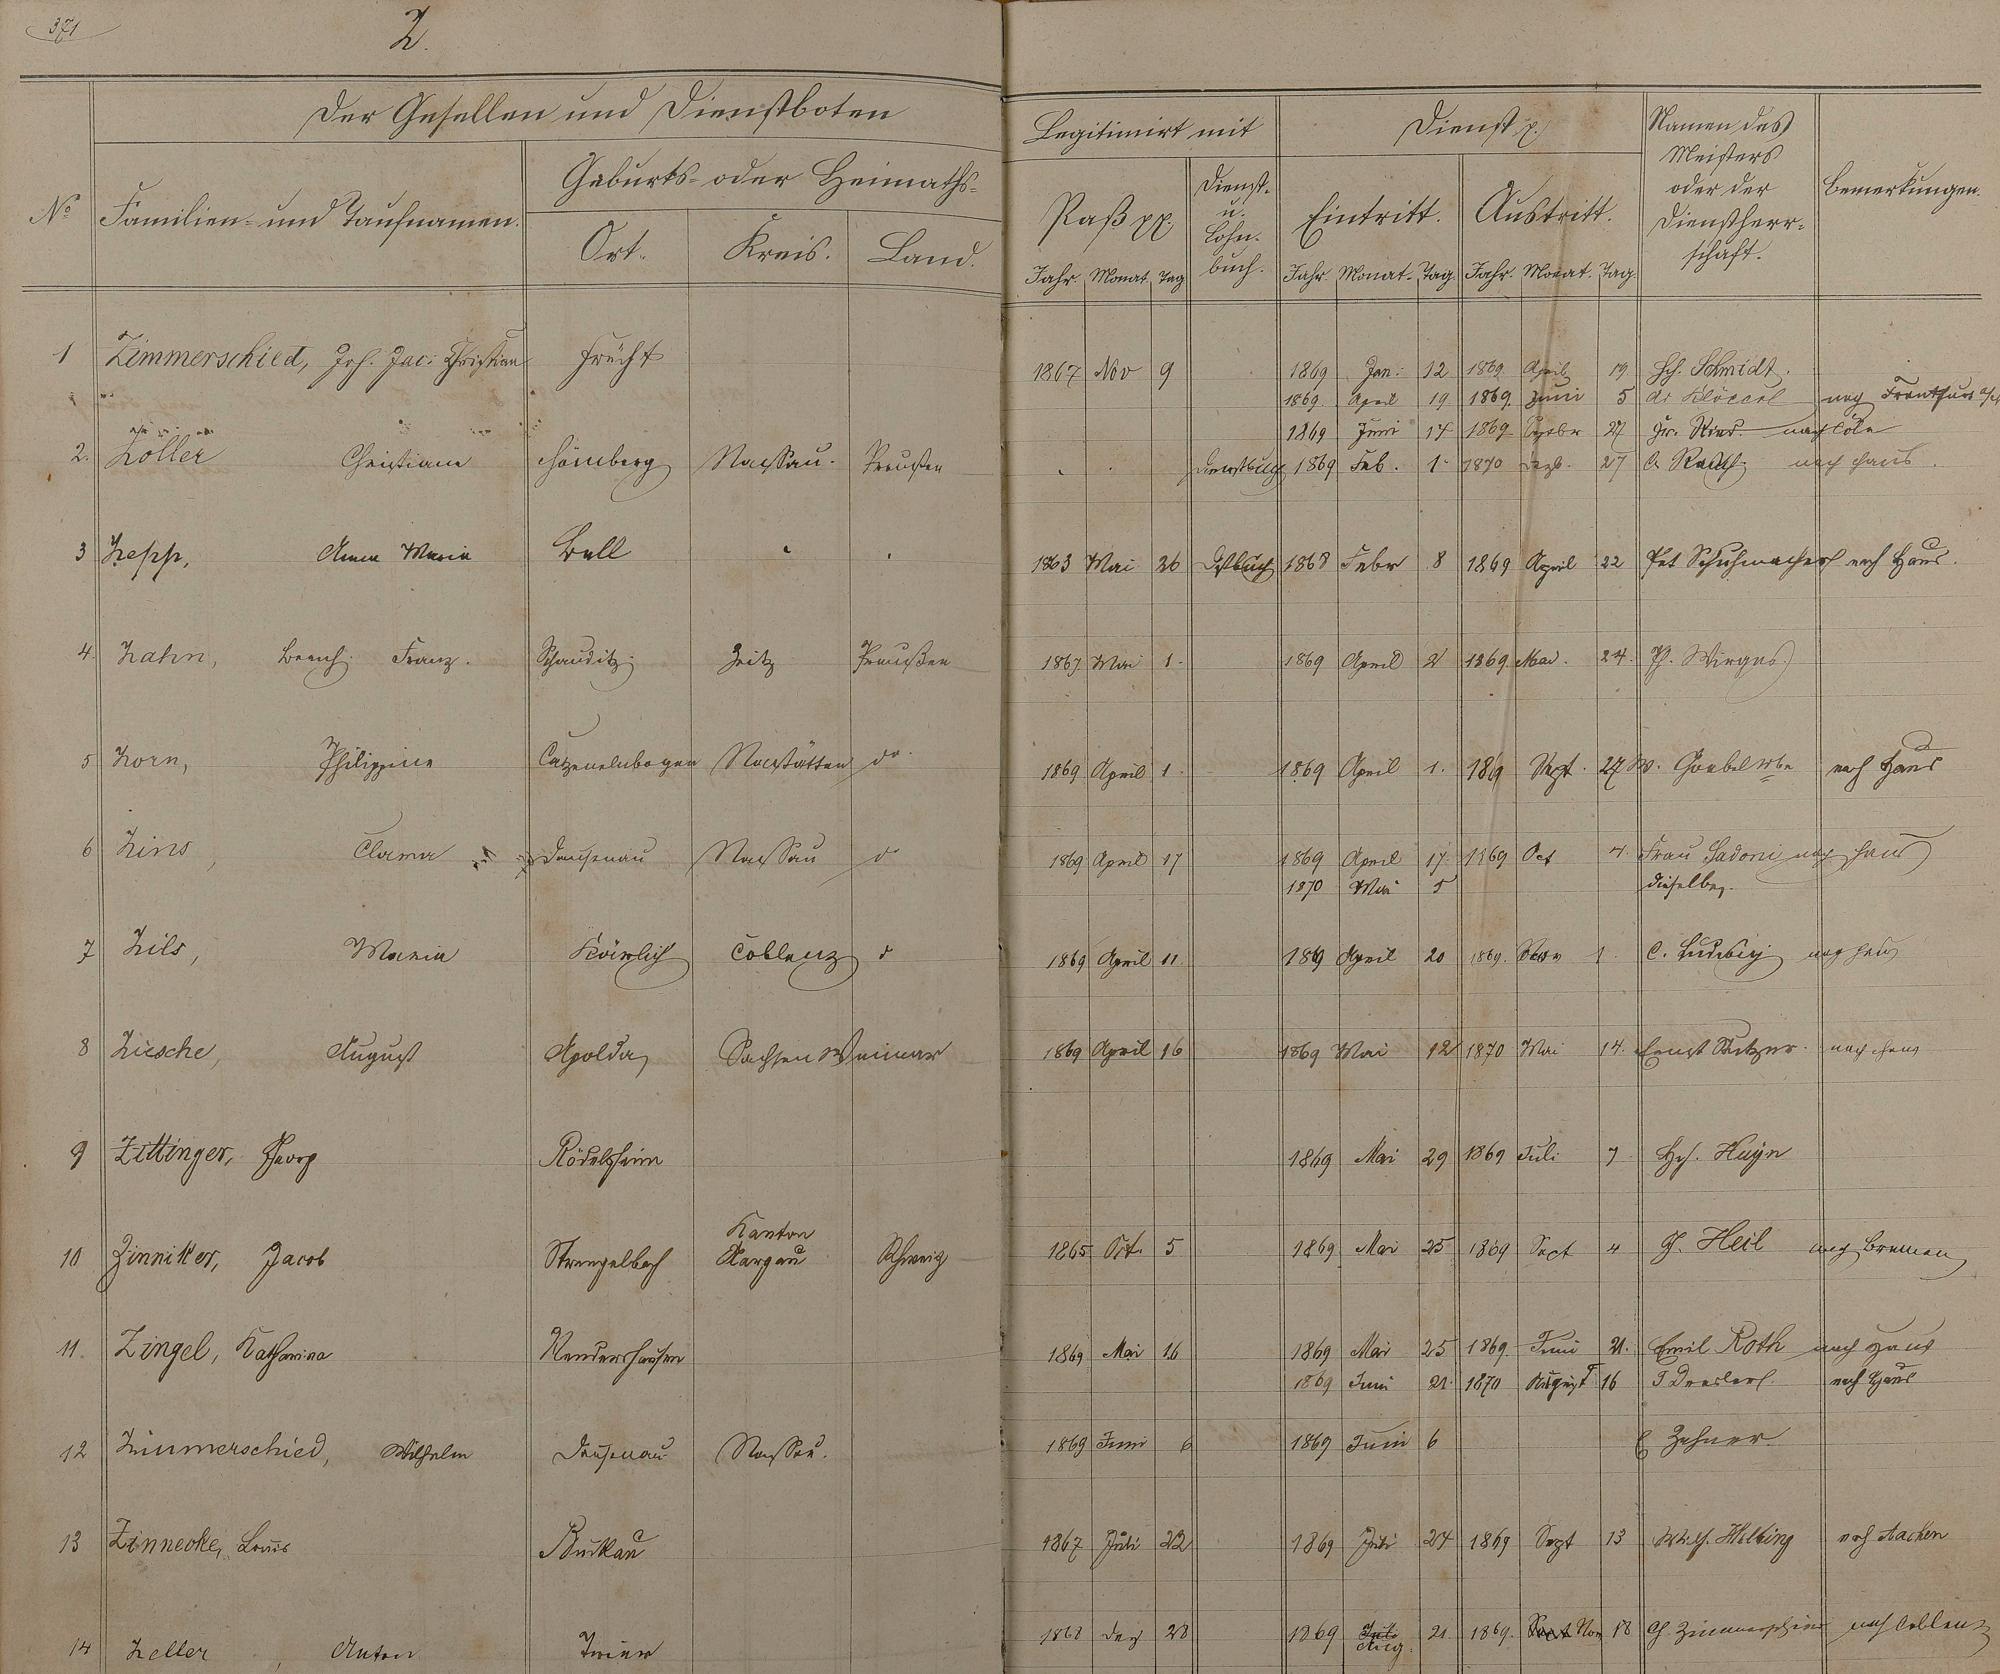 371
Z.
Der Gesellen und Dienstboten
Legitimirt mit
Dienst
Namen des Meisters oder der Dienstherr- schaft.
Bemerkungen.
No
Familien- und Taufnamen.
Geburts- oder Heimaths-
Ort.
Kreis.
Land.
Paß pp.
Dienst- u. Lohn- buch.
Eintritt.
Austritt.
Jahr. Monat. Tag Jahr. Monat. Tag. Jahr. Monat. Tag.
1 Zimmerschied, Joh. Jac. Christian Frücht 1867 Nov 9 1869 Jan. 12 1869 April 19 Hch. Schmidt.
1869. April 19 1869. Juni 5 Klöckel nach Frankfurt a/M
1869 Juni 17 1869 27 nach Cöln
2. Zoller Christiane Hömberg Nassau. Preußen Dienstbuch 1869 Feb. 1 1870 27 nach Haus.
3 Zepp, Anna Maria Bell 1863 Mai 26 Dstbuch 1868 Febr 8 1869 April 22 Pet Schuhmacher nach Haus.
4. Zahn, Franz. Schauditz Zeitz Preußen 1867 Mai 1. 1869 April 2 1869 Mai. 24. Wirges
5 Zorn, Philippine Catzenelnbogen Nastätten do. 1869 April 1. 1869 April 1. 1869 Sept. 27 W. Goebel Wbe nach Haus
6 Zins, Clama Dausenau Nassau do 1869 April 17 1869 April 17 1869 Oct 4. Frau Sadoni nach Haus
1870 Mai 5 dieselbe.
7 Zils, Maria Kärlich Coblenz do 1869 April 11. 1869 April 20 1869. Nov 1 C. Ludwig nach Haus
8 Ziesche, August Apolda Sachsen Weimar 1869 April 16 1869 Mai 12 1870 Mai 14. Ernst nach Haus
9 Zittinger, Georg Rödelheim 1869 Mai 29 1869 Juli 7 Hch. Huyn
10 Zinniker, Jacob Strengelbach Kanton Aargau Schweiz 1865 Oct. 5 1869 Mai 25 1869 Sept 4 Heil nach Bremen
11. Zingel, Katharina 1869 Mai 16 1869 Mai 25 1869. Juni 21. Emil Roth nach Haus
1869 Juni 21. 1870 August 16 nach Haus
12 Zimmerschied, Wilhelm Dausenau Nassau. 1869 Juni 6 1869 Juni 6 E Zehner.
13 Zinnecke, Louis Buckau 1867 Juli 22 1869 Juli 24 1869 Sept 13 Wilh. Helbing nach Aachen
14 Zeller, Anton Trier 1868 Dez 28 1869 Juli Aug. 21 1869. Sept Nov 18 nach Coblenz